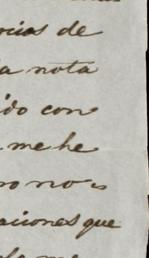 ocios de
a nota
ido con
me he
ro no
aciones que